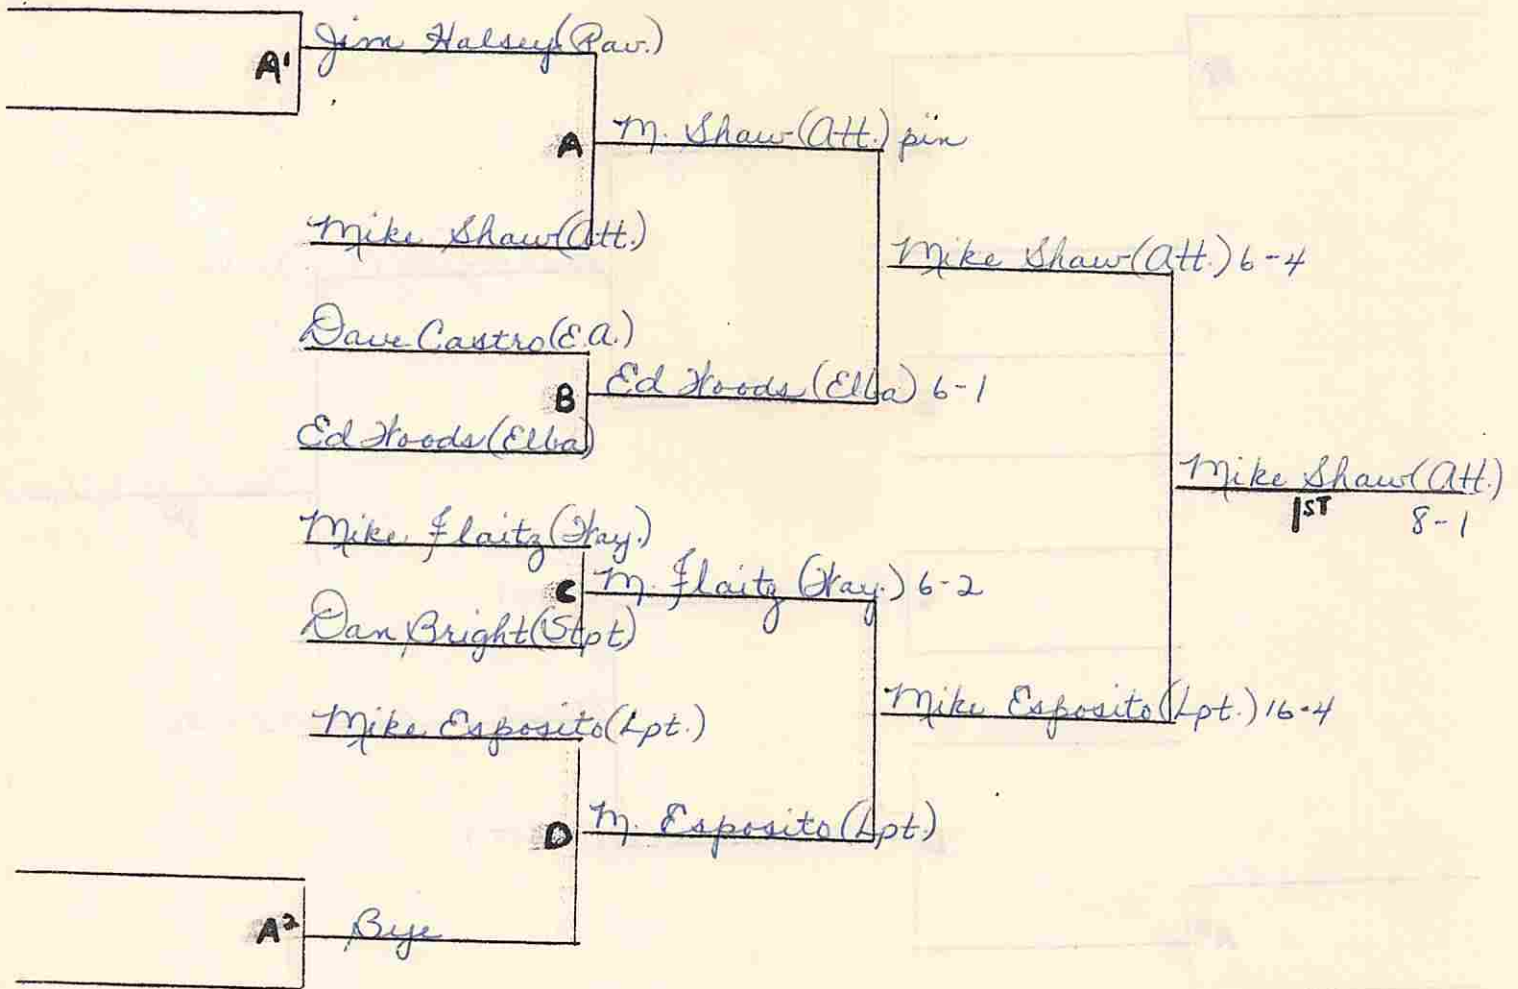 A¹ Jim Halsey (Pav.)
A M. Shaw (Att.) pin
Mike Shaw (Att.)
Mike Shaw (Att.) 6-4
Dave Castro (E.A.)
B Ed Woods (Elba) 6-1
Ed Woods (Elba)
Mike Shaw (Att.)
1ST 8-1
Mike Flaitz (Way.)
C M. Flaitz (Way.) 6-2
Dan Bright (Stpt)
Mike Esposito (Lpt.) 16-4
Mike Esposito (Lpt.)
D M. Esposito (Lpt.)
A² Bye